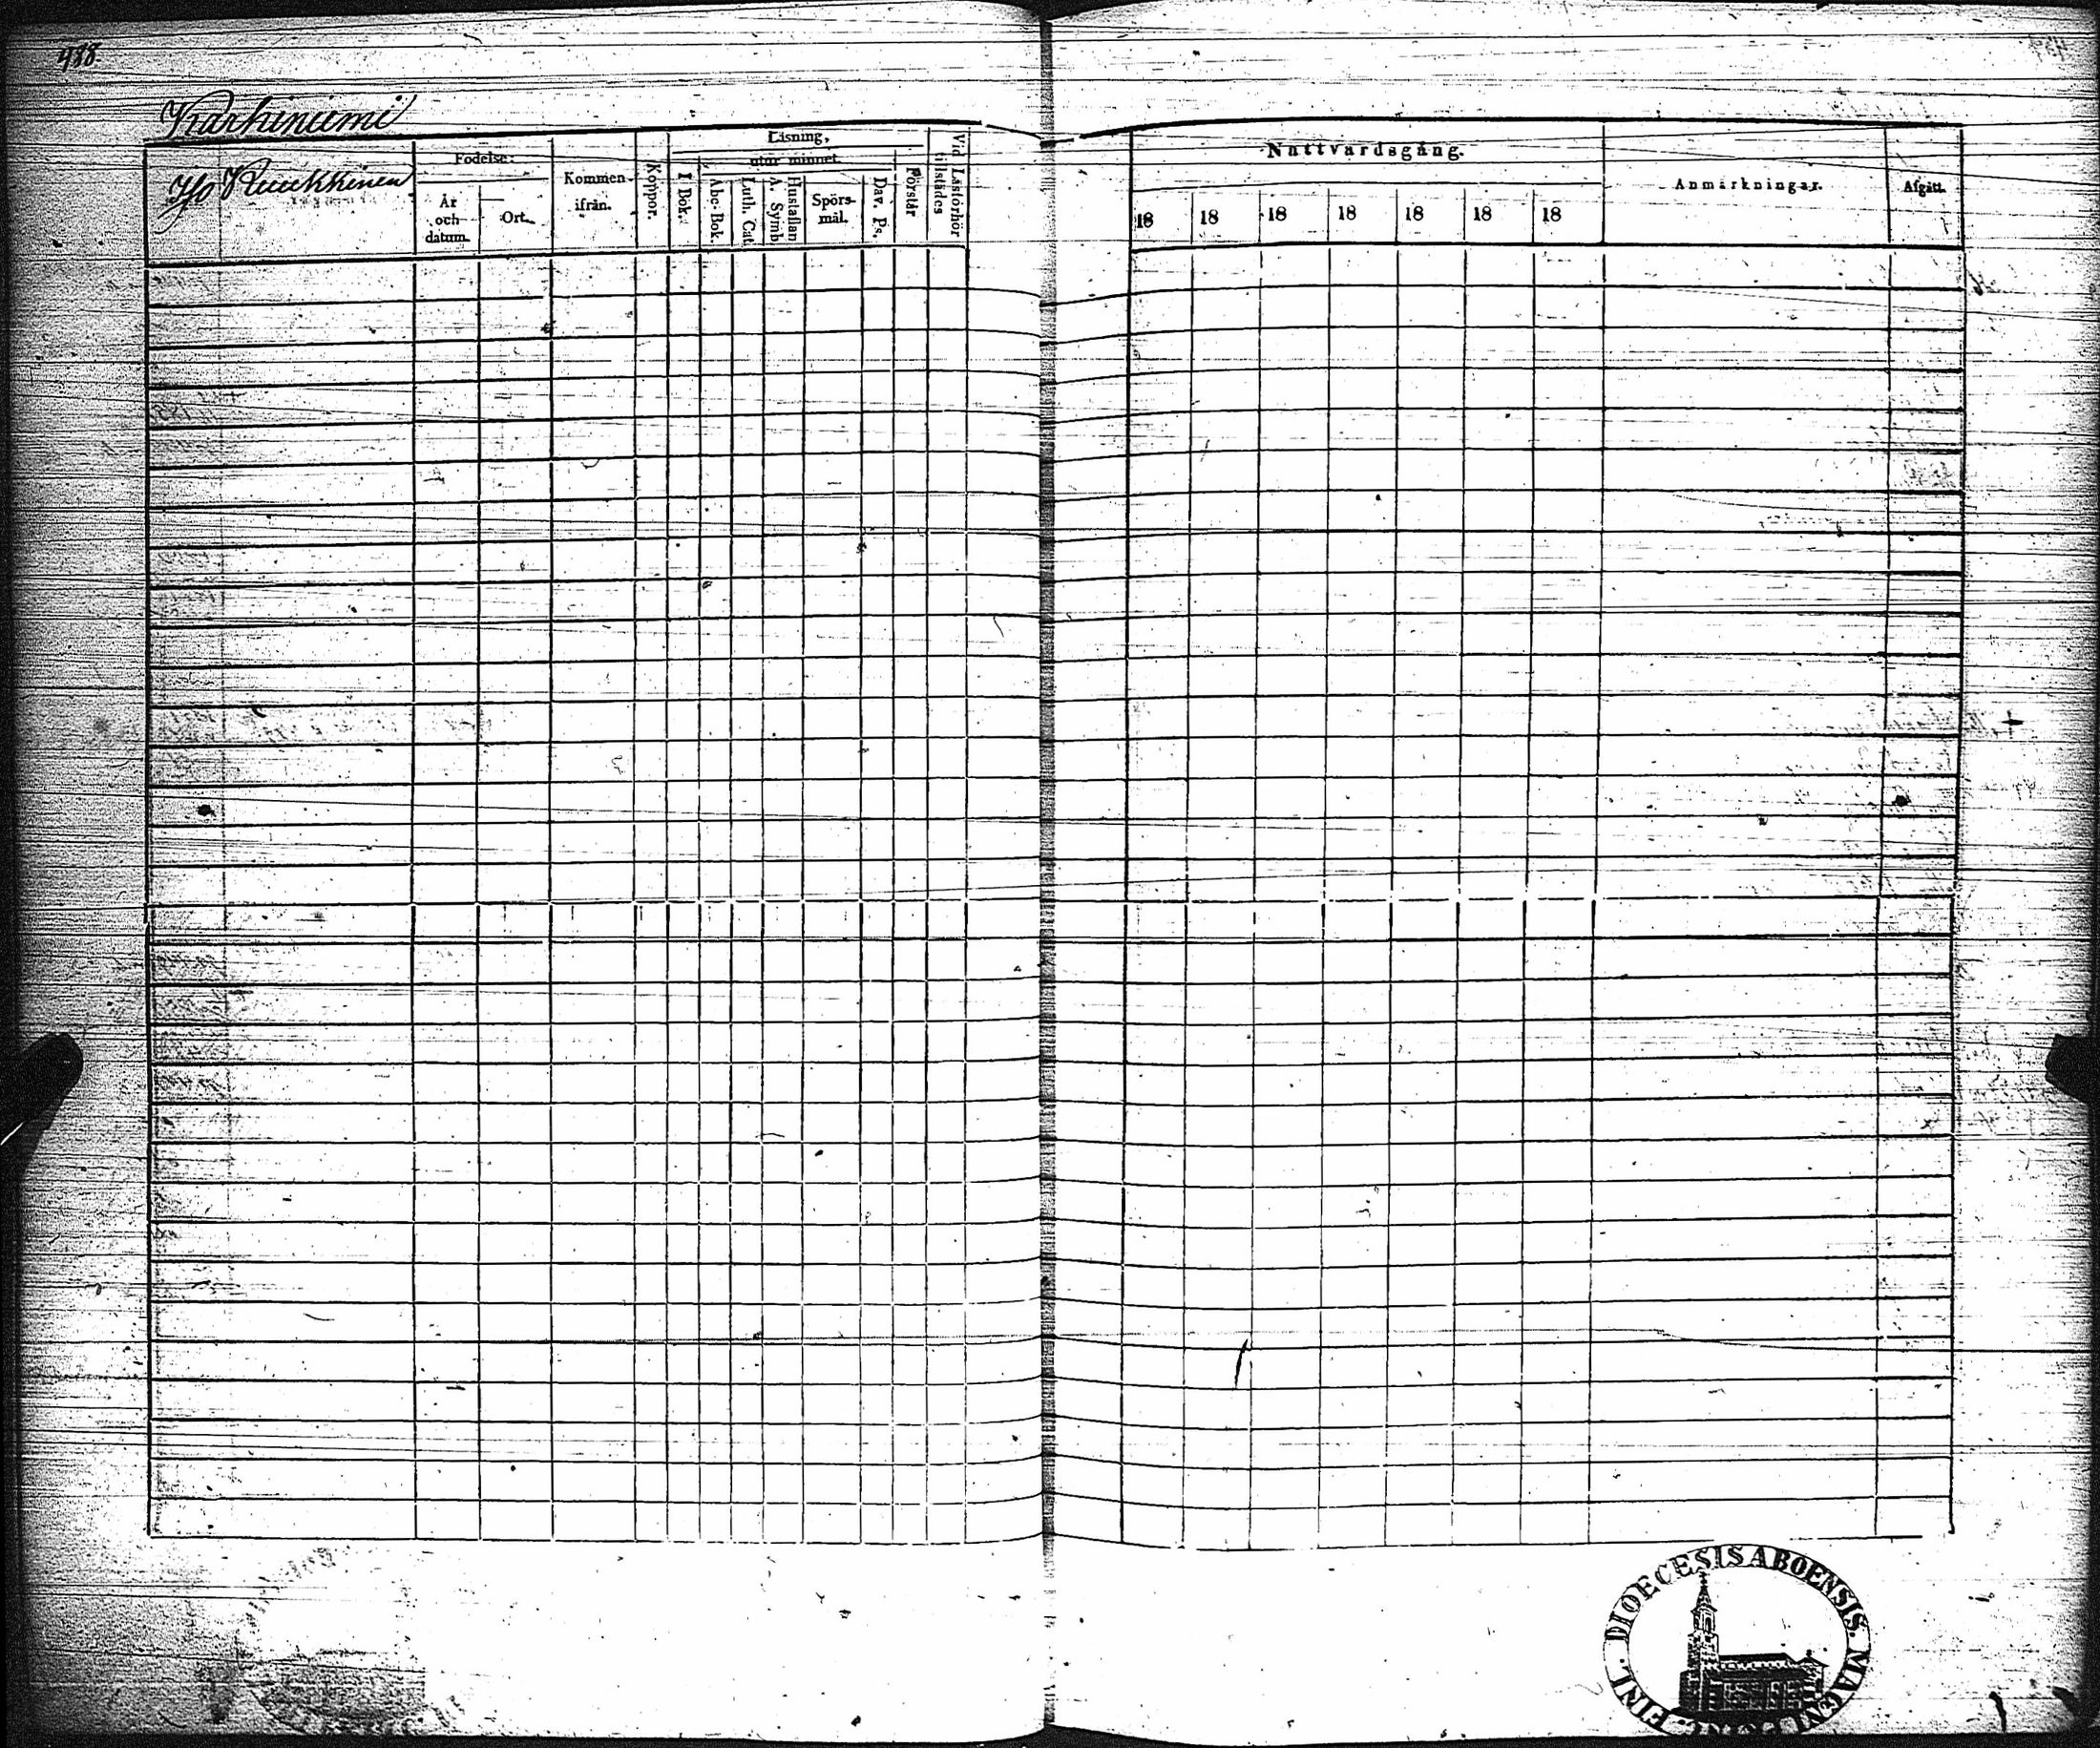 488
Karhiniemi
Iso Kuukkinen
Födelse:
År och datum.
Ort.
Kommen ifrån.
Koppor.
Läsning,
utur minnet.
I Bok.
Abc-Bok.
Luth. Cat.
Hustaflan A. Symb.
Spörsmål.
Dav. Ps.
Förstår
Vid Läsförhör tillstädes
Nattvardsgång.
18 18 18 18 18 18 18
Anmärkningar.
Afgått.
DIOECESIS ABOENSIS. MAGNI DUC. FINL.